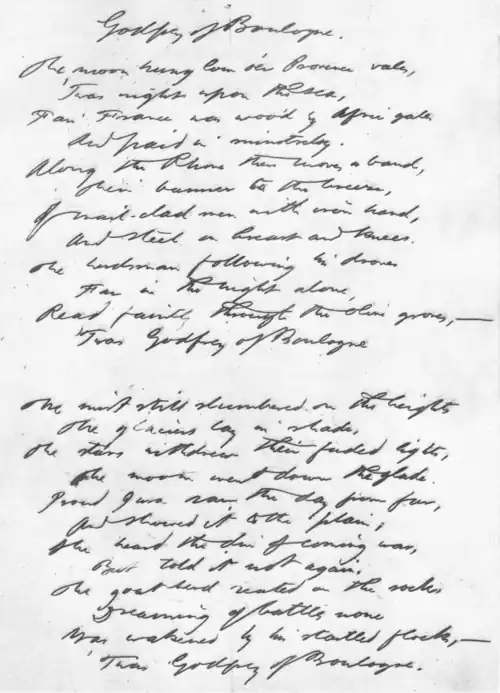 Godfrey of Boulogne.
The moon hung low o'er Provence vales,
'Twas night upon the sea,
Fair France was woo'd by Afric gales
And paid in minstrelsy.
Along the Rhone then moves a band,
Their banner to the breeze,
Of mail-clad men with iron hand,
And steel on breast and knees.
The herdsman following his droves
Far in the night alone,
Read faintly through the olive groves,—
'Twas Godfrey of Boulogne
The mist still slumbered on the heights
The glaciers lay in shade,
The stars withdrew their faded lights,
The moon went down the glade.
Proud Jura saw the day from far,
And showed it to the plain;
She heard the din of coming war,
But told it not again.
The goatherd seated on the rocks
Dreaming of battles none
Was wakened by his startled flocks,—
'Twas Godfrey of Boulogne.